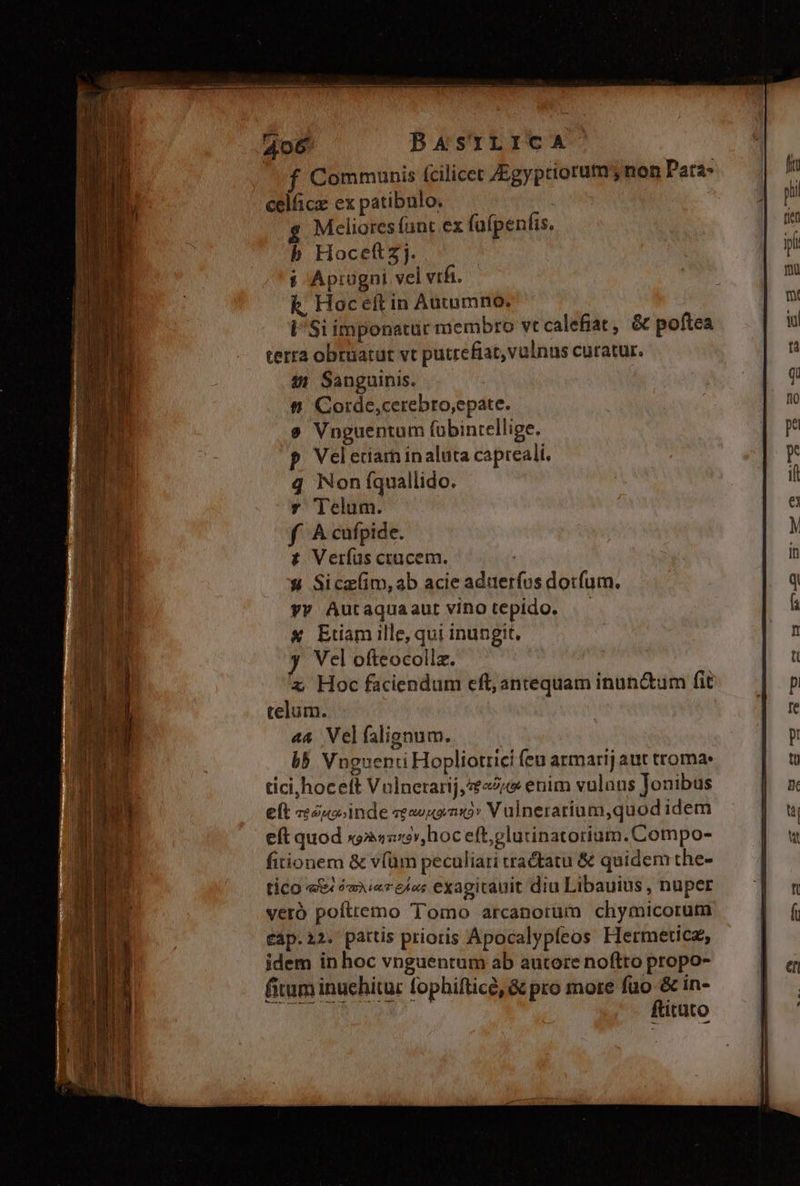 406 BASILICA
f Communis ſcilicet Ægyptiorum, non Para-
celſicæ ex patibulo.
g Meliores ſunt ex ſuſpenſis.
h Hoc eſt ʒj.
i Aprugni vel vrſi.
k Hoc eſt in Autumno.
l Si imponatur membro vt calefiat, & poſtea
terra obruatur vt putrefiat, vulnus curatur.
m Sanguinis.
n Corde, cerebro, epate.
o Vnguentum ſubintellige.
p Vel etiam in aluta capreali.
q Non ſquallido.
r Telum.
ſ A cuſpide.
t Verſus crucem.
u Si cæſim, ab acie aduerſus dorſum.
vv Aut aqua aut vino tepido.
x Etiam ille, qui inungit.
y Vel oſteocollæ.
z Hoc faciendum eſt, antequam inunctum ſit
telum.
aa Vel ſalignum.
bb Vnguenti Hopliotrici ſeu armarij aut troma-
tici, hoc eſt Vulnerarij, enim vulnus Jonibus
eſt inde Vulnerarium, quod idem
eſt quod hoc eſt, glutinatorium. Compo-
ſitionem & vſum peculiari tractatu & quidem the-
tico exagitauit diu Libauius, nuper
verò poſtremo Tomo arcanorum chymicorum
cap. 22. partis prioris Apocalypſeos Hermeticæ,
idem in hoc vnguentum ab autore noſtro propo-
ſitum inuehitur ſophiſticè, & pro more ſuo & in-
ſtituto